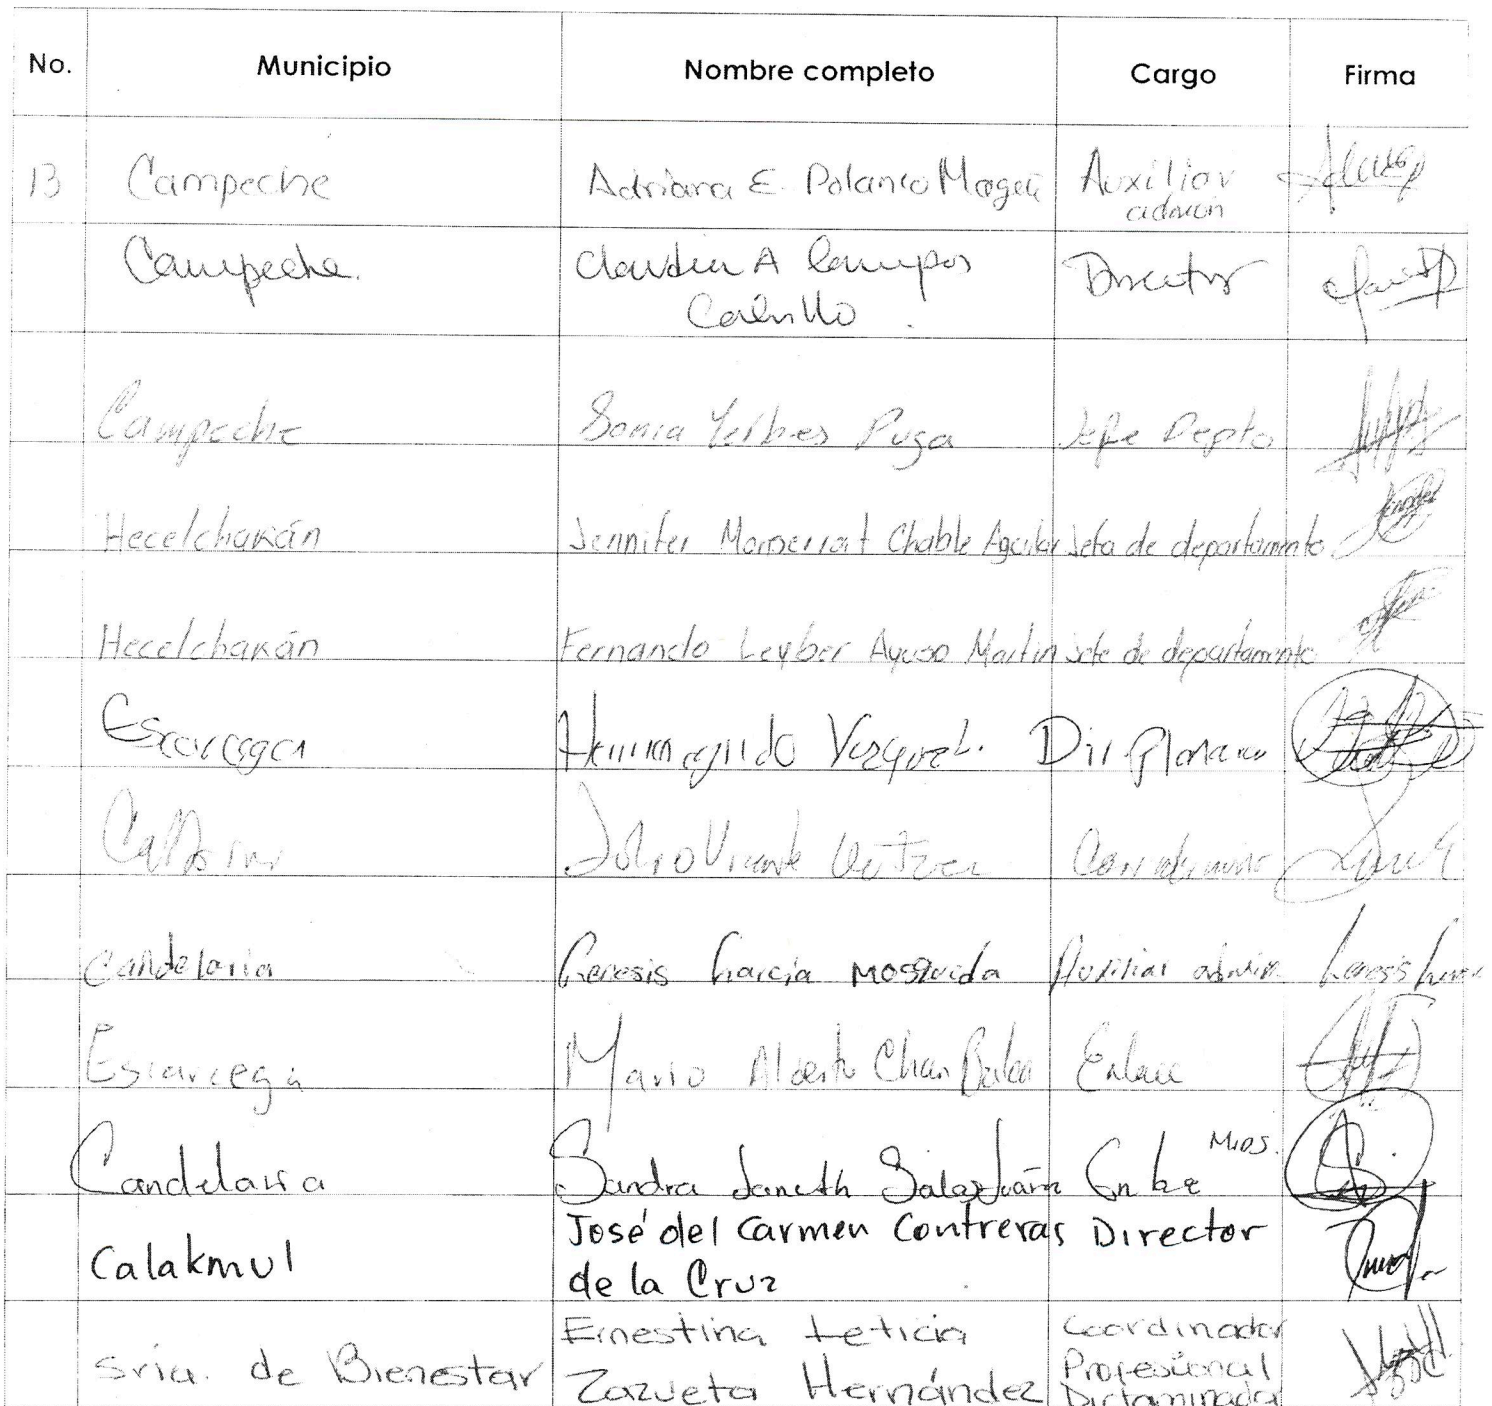 No. Municipio Nombre completo Cargo Firma
13 Campeche Adriana E. Polanco Magaña Auxiliar
admon
Campeche. Claudia A Campos Director
Cabrillo
Campeche Sonia Yerbes Puga Jefe Depto
Hecelchakán Jennifer Monserrat Chable Aguilar Jefa de departamento
Hecelchakán Fernando Leyber Ayuso Martin Jefe de departamento
Escarcega Hermenegildo Vazquez L. Dir Planeac
Julio Vicente
Candelaria Genesis Garcia Mosqueda Auxiliar admin Genesis
Escarcega Mario Alberto Chan Enlace
Candelaria Sandra Janeth Salaz Enlace MIDS.
Calakmul José del Carmen Contreras Director
de la Cruz
Sria. de Bienestar Ernestina Leticia Coordinador
Zazueta Hernández Profesional
Dictaminador